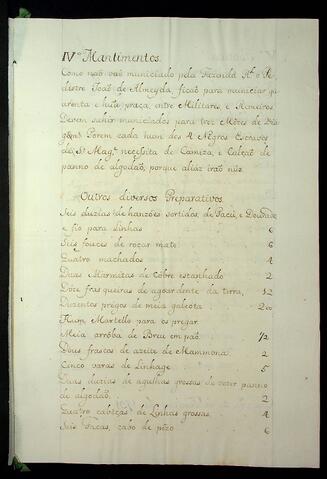 IV.º Mantimentos.
Como naõ vaõ municiado pela Fazenda R.l o Pe-
destre Joaõ de Almeyda, ficaõ para municiar qu-
arenta e huã praça, entre Militares, e Remeiros
Devem sahir municiados para tres Mezes de Via-
gem: Porem cada hum dos 4 Negros Escravos
de S. Mag.e necessita de Camiza, e Calçaõ de
panno de algodaõ, porque aliáz iraõ nûs.
Outros diversos Preparativos.
Seis duzias de hanzões sortidos, de Pacú, e Dourado
e fio para Linhas 6
Seis fouces de roçar mato 6
Quatro machados 4
Duas Marmitas de Cobre estanhado 2
Dôze frasqueiras de agoardente da terra, 12
Duzentos prégos de meia galeota 200
Hum, Martello para os pregar
Meia arrôba de Breu em paõ 1/2
Dous frascos de azeite de Mammona 2
Cinco varas de Linhage 5
Duas duzias de agulhas grossas de cozer panno
de algodaõ, 2
Quatro cabêças de Linhas grossas 4
Seis Facas, cabo de pêzo 6